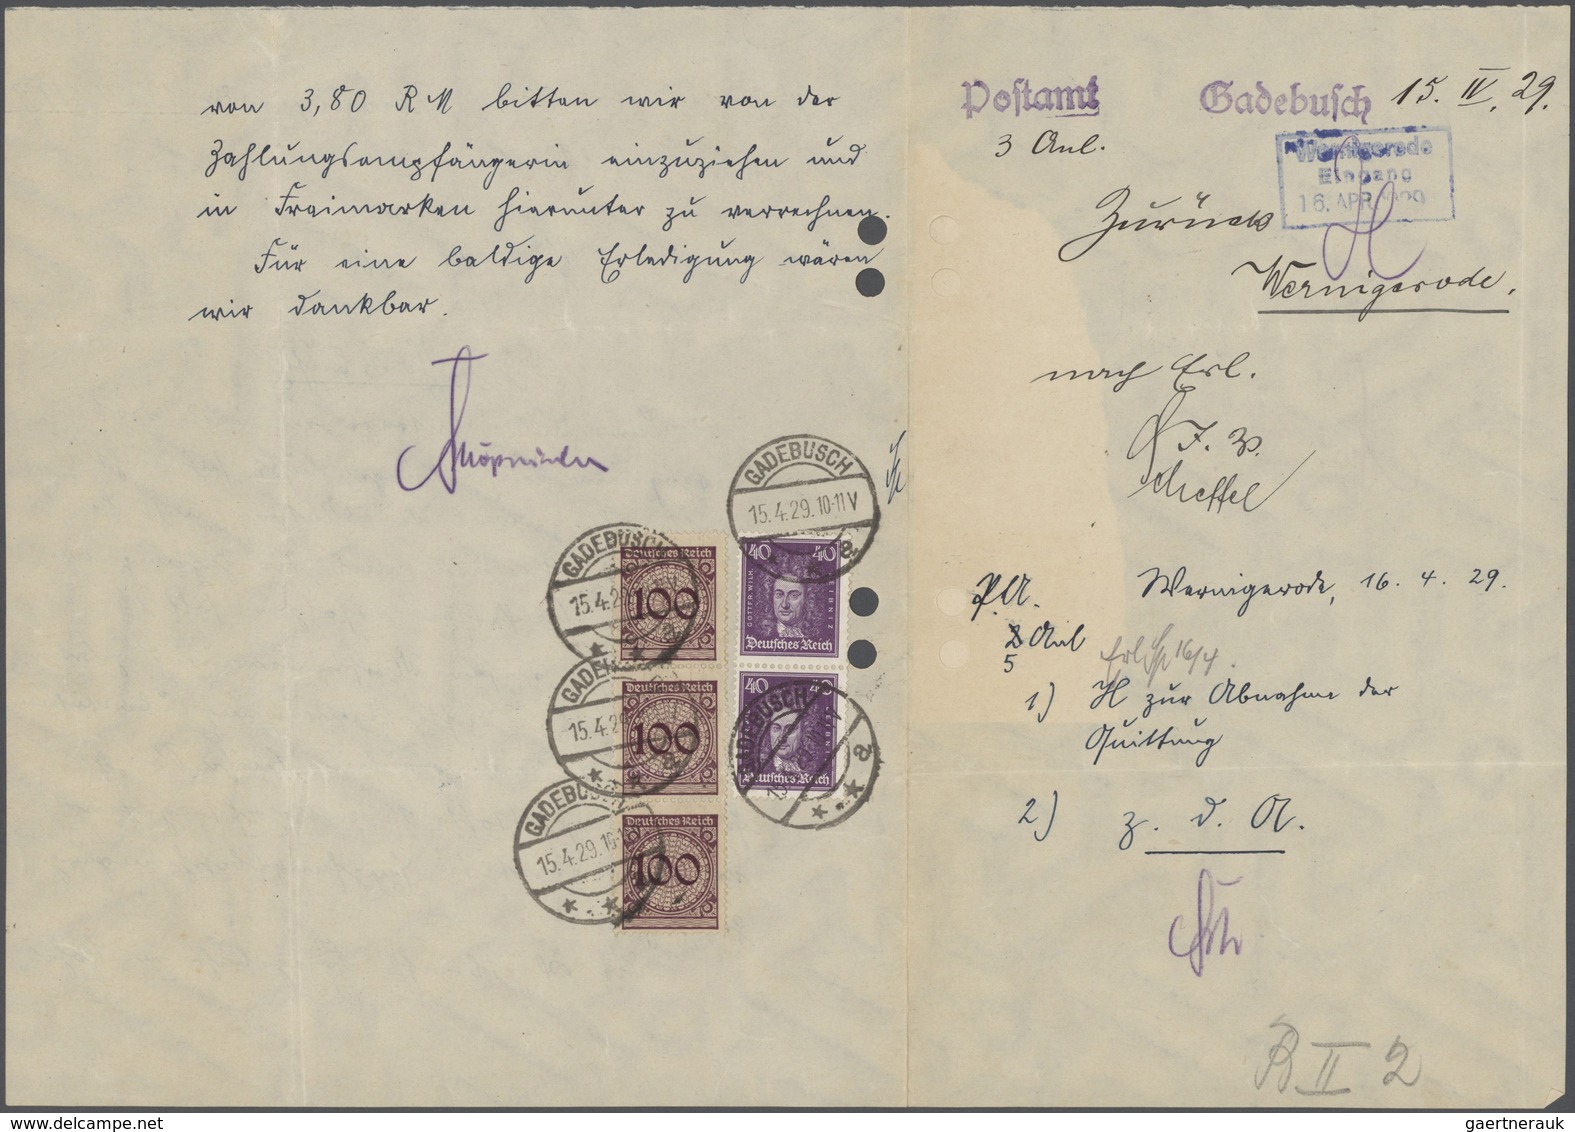 von 3,80 RM bitten wir von der
Zahlungsempfängerin einzuziehen und
in Freimarken hierunter zu verrechnen.
Für eine baldige Erledigung wären
wir dankbar.
GADEBUSCH
15.4.29.10-11V
a
GADEBUSCH
15.4.29
a
GADEBUSCH
15.4.29
a
GADEBUSCH
15.4.29.10-11
GADEBUSCH
a
Deutsches Reich
100
Deutsches Reich
100
Deutsches Reich
100
40 40
GOTTFR. WILH. LEIBNIZ
Deutsches Reich
40 40
LEIBNIZ
Deutsches Reich
Postamt Gadebusch 15. IV. 29.
3 Anl.
Wernigerode
Eingang
16. APR. 1929
Zurück
Wernigerode.
nach Erl.
Scheffel
P.A. Wernigerode, 16. 4. 29.
5 Anl
Erl. 16/4.
1) H zur Abnahme der
Quittung
2) z. d. A.
B II 2
gaertnerauk